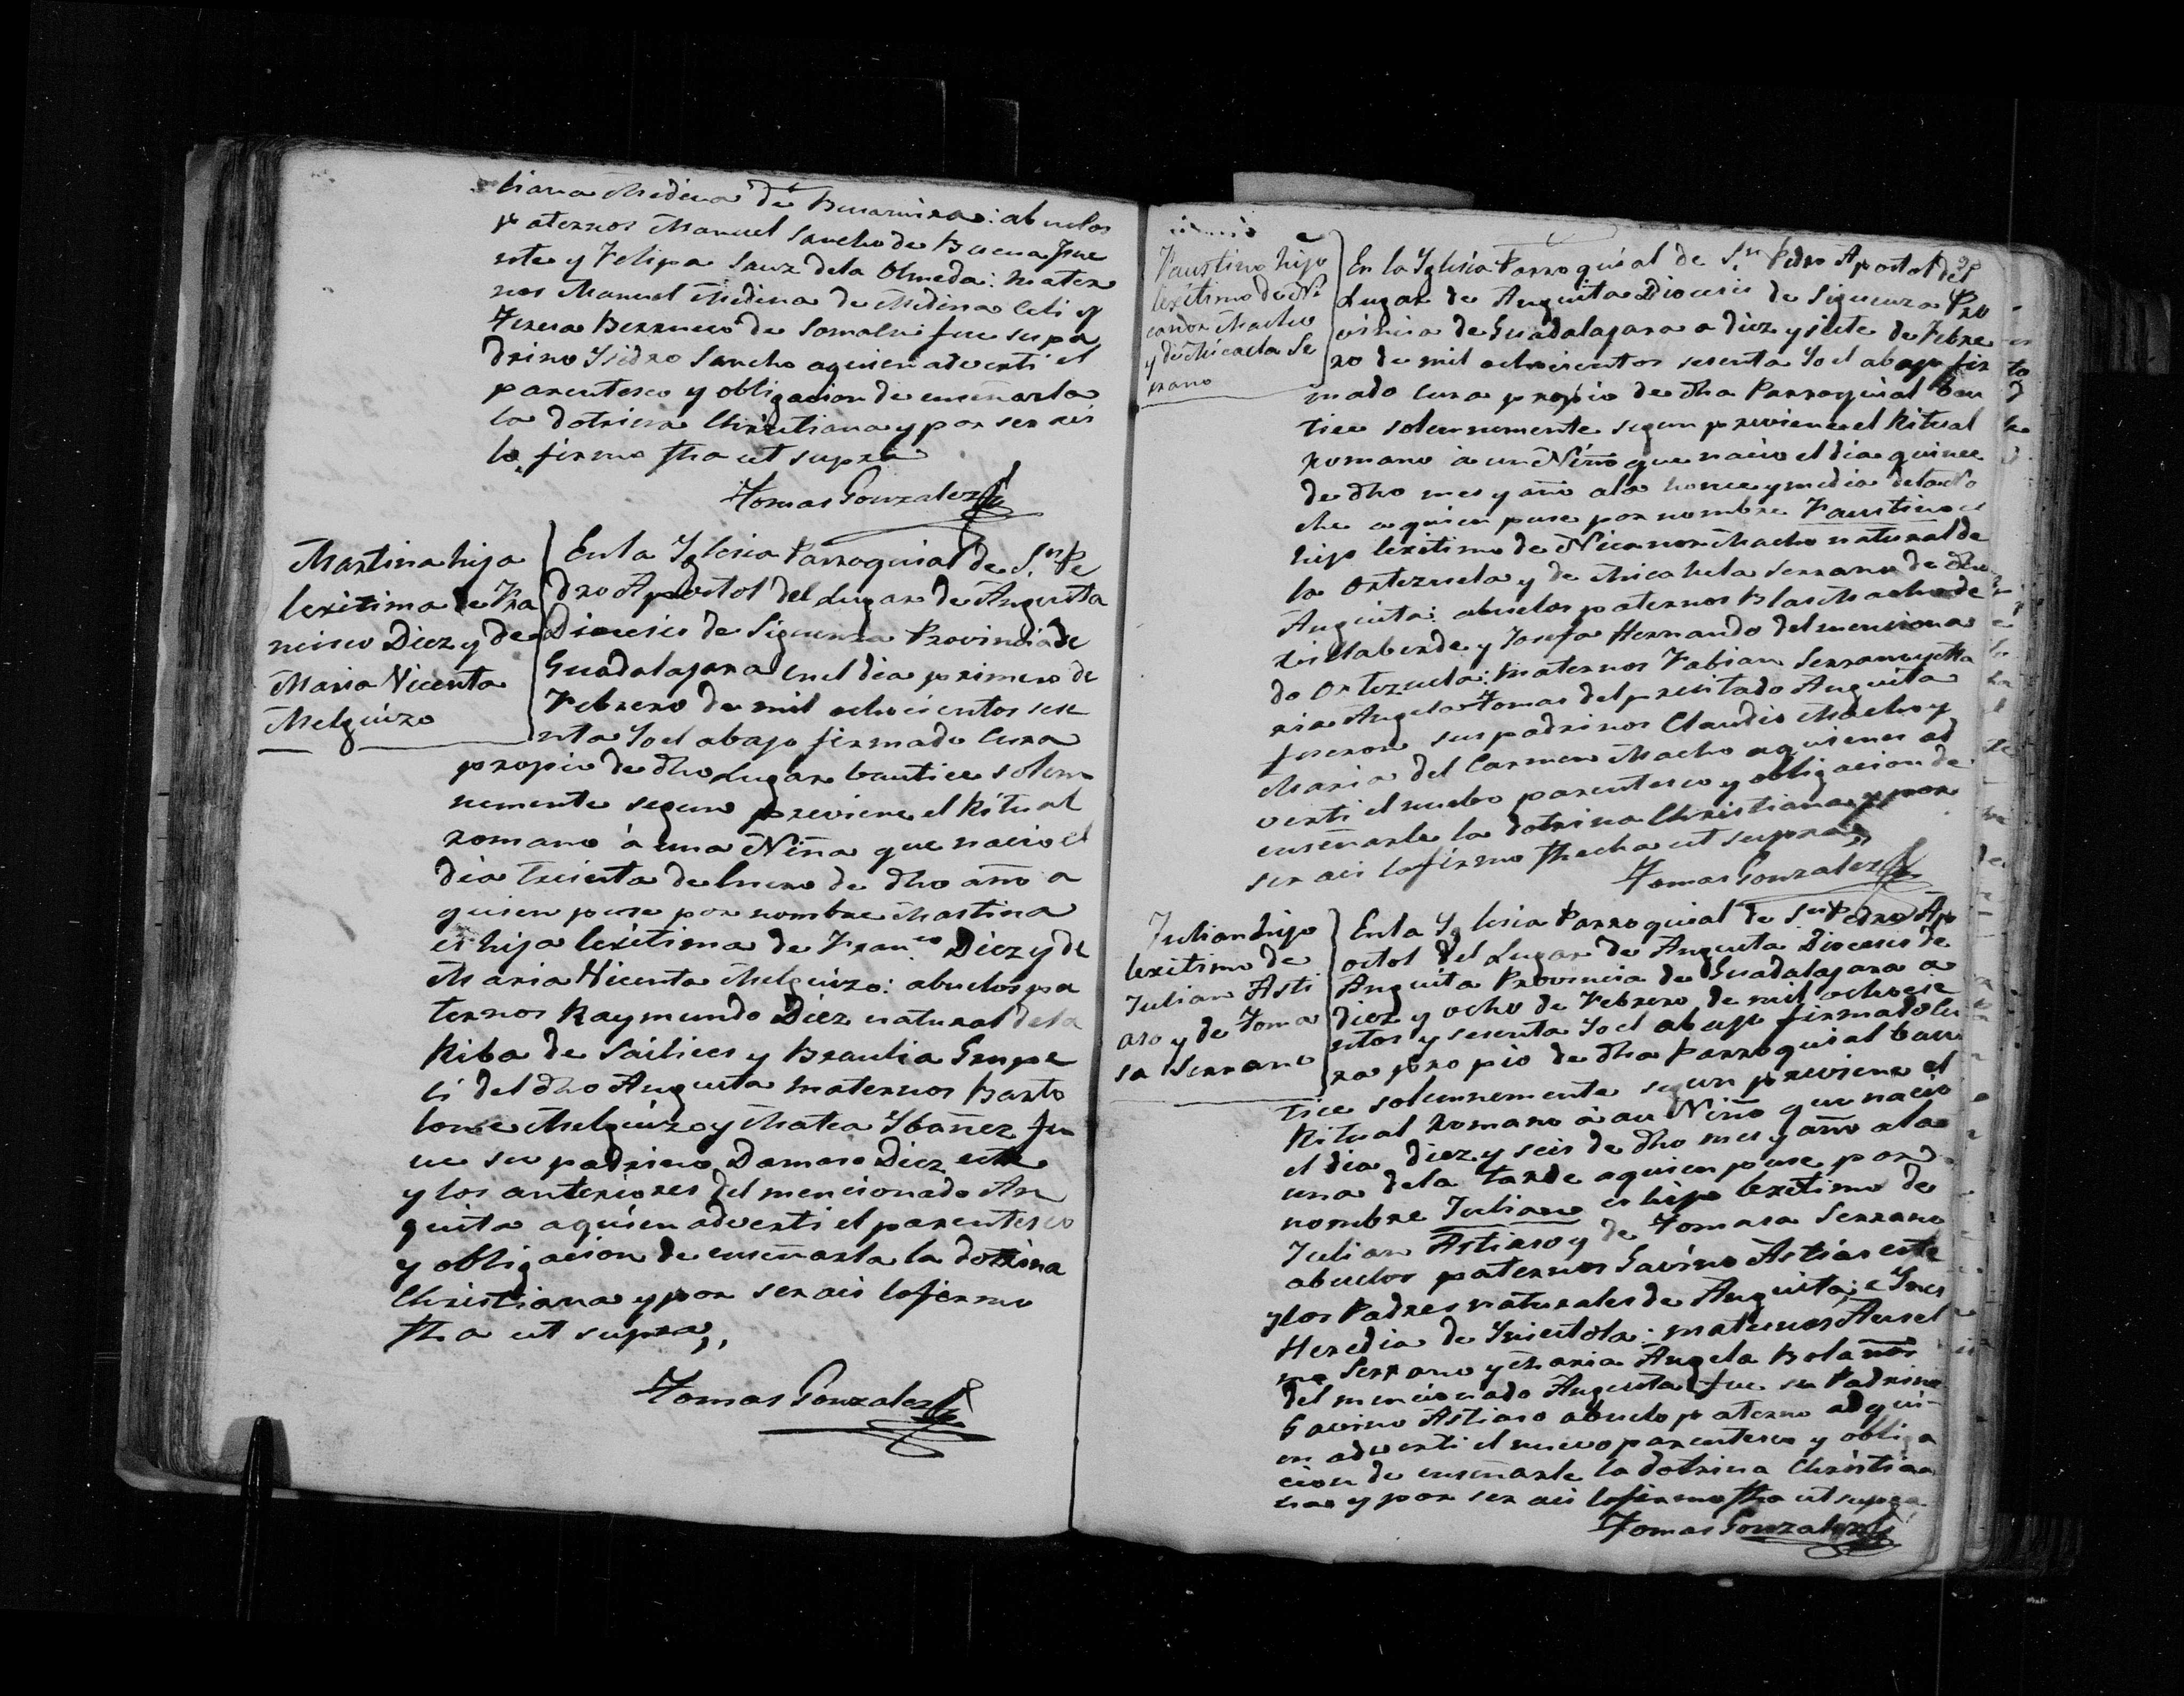 liana Medina de Benamira: abuelos
paternos Manuel Sancho de Buenafue
nte y Felipa Sanz dela Olmeda: mater
nos Manuel Medina de Medina Celi y
Teresa Berrueco de Somaen fue su pa
drino Ysidro Sancho aquien adverti el
parentesco y obligacion de enseñarla
la dotrina Christiana y por ser asi
lo firmo fha ut supra
Tomas Gonzalez
Martina hija
lexitima de Fra
ncisco Diez y de
Maria Vicenta
Melguizo
En la Yglesia Parroquial de S.n Pe
dro Apostol del Lugar de Anguita
Diocesis de Siguenza Provincia de
Guadalajara en el dia primero de
Febrero de mil ochocientos sese
nta Yo el abajo firmado Cura
propio de dho Lugar bautice solem
nemente segun previene el Ritual
romano á una Niña que nacio el
dia treinta de Enero de dho año a
quien puse por nombre Martina
es hija lexitima de Fran.co Diez y de
Maria Vicenta Melguizo: abuelos pa
ternos Raymundo Diez natural dela
Riba de Saelices y Braulia
del dho Anguita maternos Barto
lome Melguizo y Matea Ybañez fu
ue su padrino Damaso Diez este
y los anteriores del mencionado An
guita aquien adverti el parentesco
y obligacion de enseñarla la dotrina
Christiana y por ser asi lo firmo
fha ut supra,,
Tomas Gonzalez
Faustino hijo
lexitimo de Ni
canor Macho
y de Micaela Se
rrano
En la Yglesia Parroquial de S.n Pedro Apostol del
Lugar de Anguita Diocesis de Siguenza Pro
vincia de Guadalajara a diez y siete de Febre
ro de mil ochocientos sesenta Yo el abajo fir
mado Cura propio de dha Parroquial bau
tice solemnemente segun previene el Ritual
romano á un Niño que nacio el dia quince
de dho mes y año ala honce y media delano
che a quien puse por nombre Faustino es
hijo lexitimo de Nicanor Macho natural de
la Ortezuela y de Micahela Serrano de dho
Anguita: abuelos paternos Blas Macho de
y Josefa Hernando del menciona
do Ortezuela: maternos Fabian Serrano y Ma
ria Angela Tomas del precitado Anguita
fueron sus padrinos Claudio Macho y
Maria del Carmen Macho aquienes ad
verti el nuebo parentesco y obligacion de
enseñarle la dotrina Christiana y por
ser asi lo firmo fhecha ut supra,,
Tomas Gonzalez
Julian hijo
lexitimo de
Julian Asti
aso y de Toma
sa Serrano
En la Yglesia Parroquial de S.n Pedro Ap
ostol del Lugar de Anguita Diocesis de
Anguita Provincia de Guadalajara a
diez y ocho de Febrero de mil ochocie
ntos y sesenta Yo el abajo firmado Cu
ra propio de dha Parroquial bau
tice solemnemente segun previene el
Ritual romano á au Niño que nacio
el dia diez y seis de dho mes y año ala
una dela tarde aquien puse por
nombre Juliano es hijo lexitimo de
Julian Astiaso y de Tomasa Serrano
abuelos paternos Gavino Astias este
y los Padres naturales de Anguita; e Ynes
Heredia de Yniestola: maternos Ansel
mo Serrano y Maria Angela Bolaños
del mencionado Anguita fue su Padrino
Gavino Astiaso abuelo paterno ad qui-
en adverti el nuevo parentesco y obliga
cion de enseñarle la dotrina Christia
na y por ser asi lo firmo fha ut supra
Tomas Gonzalez